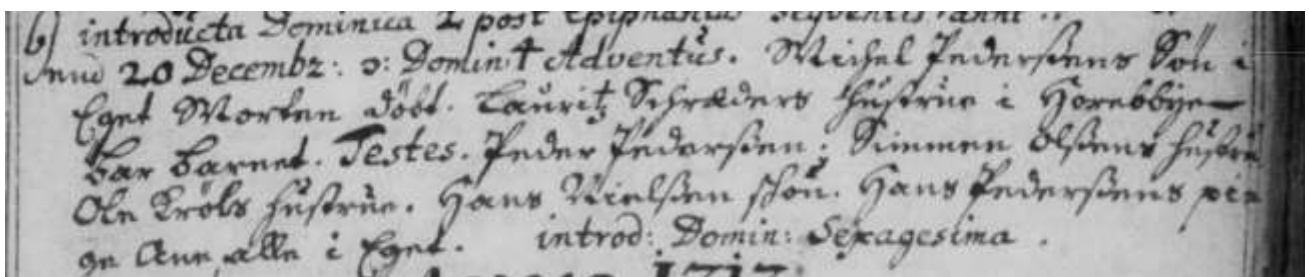 6) introducta Dominica 2 post Epiphanias seqventis anni
20 Decembr: ɔ: Domin 4 Adventus. Michel Pedersens Søn i
Eget Morten døbt. Lauritz Schrøders Hustrue i Horebbÿe
bar barnet. Testes. Peder Pedersen. Simmen Olsens hustru
Ole Krøls Hustrue. Hans Nielsen skou. Hans Pedersens pi-
ge Ane, alle i Eget. introd: Domin: Sexagesima.
1717